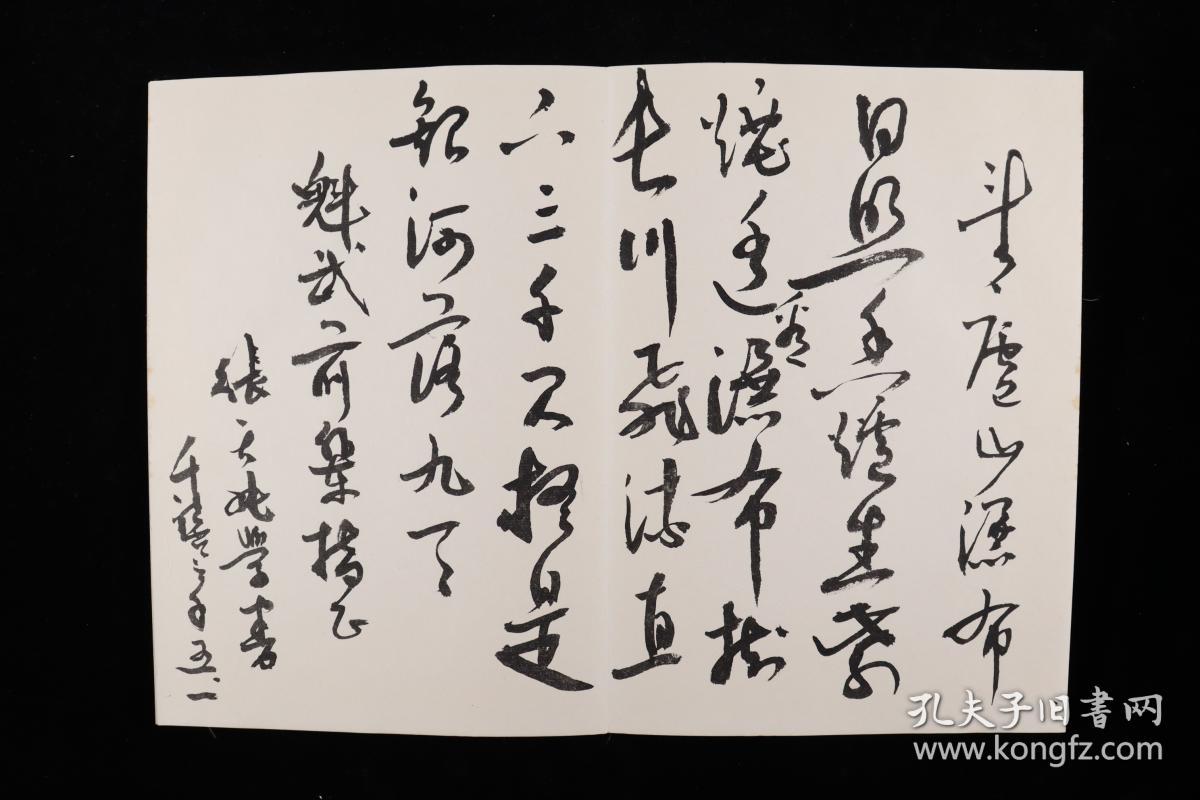 望廬山瀑布
日照香爐生紫
煙遥看瀑布掛
長川飛流直
下三千尺疑是
銀河落九天
魁武前輩指正
張天學書
千禧之年五.一
孔夫子旧書网
www.kongfz.com